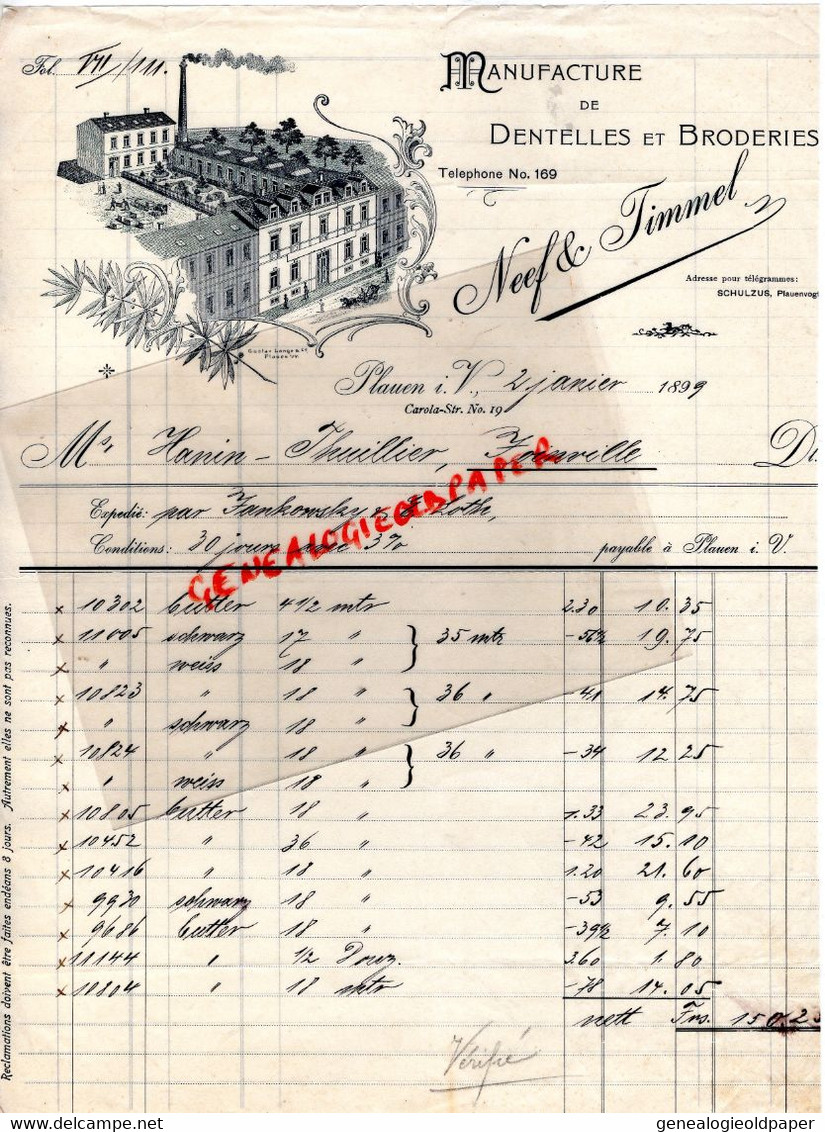 Fol. VII/111.
MANUFACTURE
DE
DENTELLES ET BRODERIES
Telephone No. 169
Neef & Timmel
Adresse pour télégrammes:
SCHULZUS, Plauenvogt
Plauen i. V., 2 janvier 1899
Carola-Str. No. 19
Mr. Hanin-Thuillier, Joinville Dt.
Expedié: par Jankowsky & Loth,
Conditions: 30 jours avec 3% payable à Plauen i. V.
Reclamations doivent être faites endéans 8 jours. Autrement elles ne sont pas reconnues.
x 10302 butter 4 1/2 mtr 2.30 10.35
x 11005 schwarz 17 " } 35 mtr -56½ 19.75
x " weiss 18 "
x 10823 " 18 " } 36 " -41 14.75
x " schwarz 18 "
x 10824 " 18 " } 36 " -34 12 25
x " weiss 18 "
x 10805 butter 18 " 1.33 23.95
x 10452 " 36 " -42 15.10
x 10416 " 18 " 1.20 21.60
x 9930 schwarz 18 " -53 9.55
x 9686 butter 18 " -39½ 7.10
x 11144 " 1/2 Douz. 3.60 1.80
x 10804 " 18 mtr -78 14.05
nett Frs. 150.25
Vérifié
GENEALOGIEOLDPAPER
genealogieoldpaper